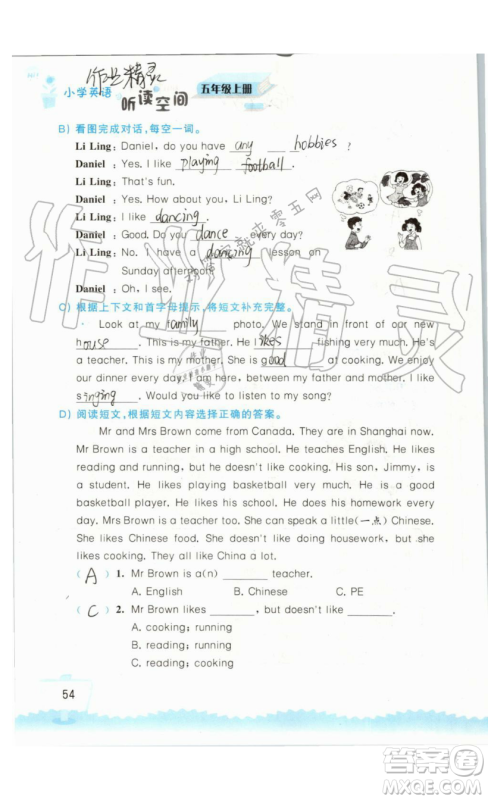 作业精灵
小学英语
听读空间
五年级上册
B) 看图完成对话,每空一词。
Li Ling: Daniel, do you have any hobbies?
Daniel: Yes. I like playing football.
Li Ling: That's fun.
Daniel: Yes. How about you, Li Ling?
Li Ling: I like dancing.
Daniel: Good. Do you dance every day?
Li Ling: No. I have a dancing lesson on
Sunday afternoon.
Daniel: Oh, I see.
C) 根据上下文和首字母提示,将短文补充完整。
Look at my family photo. We are in front of our new
house. This is my father. He likes fishing very much. He is
a teacher. This is my mother. She is good at cooking. We enjoy
our dinner every day. I am here, between my father and mother. I like
singing. Would you like to listen to my song?
D) 阅读短文,根据短文内容选择正确的答案。
Mr and Mrs Brown come from Canada. They are in Shanghai now.
Mr Brown is a teacher in a high school. He teaches English. He likes
reading and running, but he doesn't like cooking. His son, Jimmy, is
a student. He likes playing basketball very much. He is a good
basketball player. He likes his school. He does his homework every
day. Mrs Brown is a teacher too. She can speak a little(一点) Chinese.
She likes Chinese food. She doesn't like doing housework, but she
likes cooking. They all like China a lot.
( A ) 1. Mr Brown is a(n) ______ teacher.
A. English B. Chinese C. PE
( C ) 2. Mr Brown likes ______, but he doesn't like ______.
A. cooking; running
B. reading; running
C. reading; cooking
54
作业精灵
答案圈
MXQE.COM